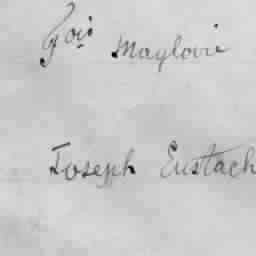 Fois Maylovie
Joseph Eustach